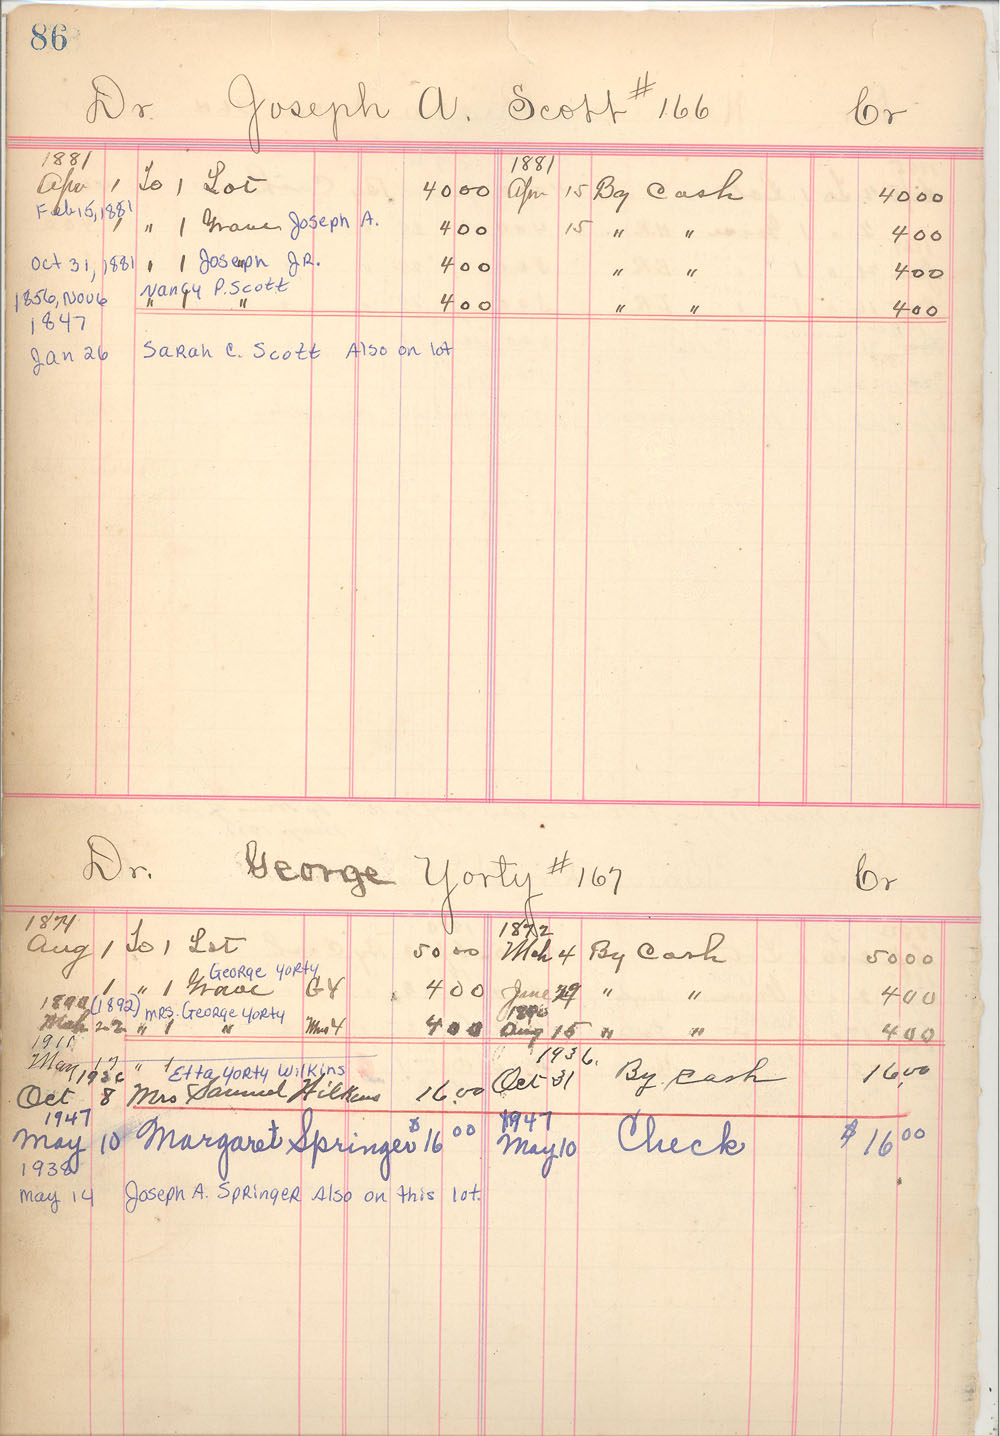 86
Dr. Joseph A. Scott #166 Cr
1881 1881
Apr 1 To 1 Lot 40 00 Apr 15 By Cash 40 00
Feb 15, 1881
1 " 1 Grave Joseph A. 4 00 15 " " 4 00
Oct 31, 1881 " 1 Joseph JR. 4 00 " " 4 00
1856, Nov 6 Nancy P. Scott
" 1 " 4 00 " " 4 00
1847
Jan 26 Sarah C. Scott Also on lot
Dr. George Yorty #167 Cr
1874 1872
Aug 1 To 1 Lot 50 00 Mch 4 By Cash 50 00
George Yorty
1 " 1 Grave G Y 4 00 June 29 " " 4 00
1890 (1892) Mrs. George Yorty 1890
Mch 22 " 1 " Mrs Y 4 00 Aug 15 " " 4 00
1911 1936.
May 17 " 1
1936 Etta Yorty Wilkins Oct 31 By cash 16.00
Oct 8 Mrs Samuel Wilkins 16.00
1947 1947
May 10 Margaret Springer $16 00 May 10 Check $16 00
1938
May 14 Joseph A. Springer Also on this lot.